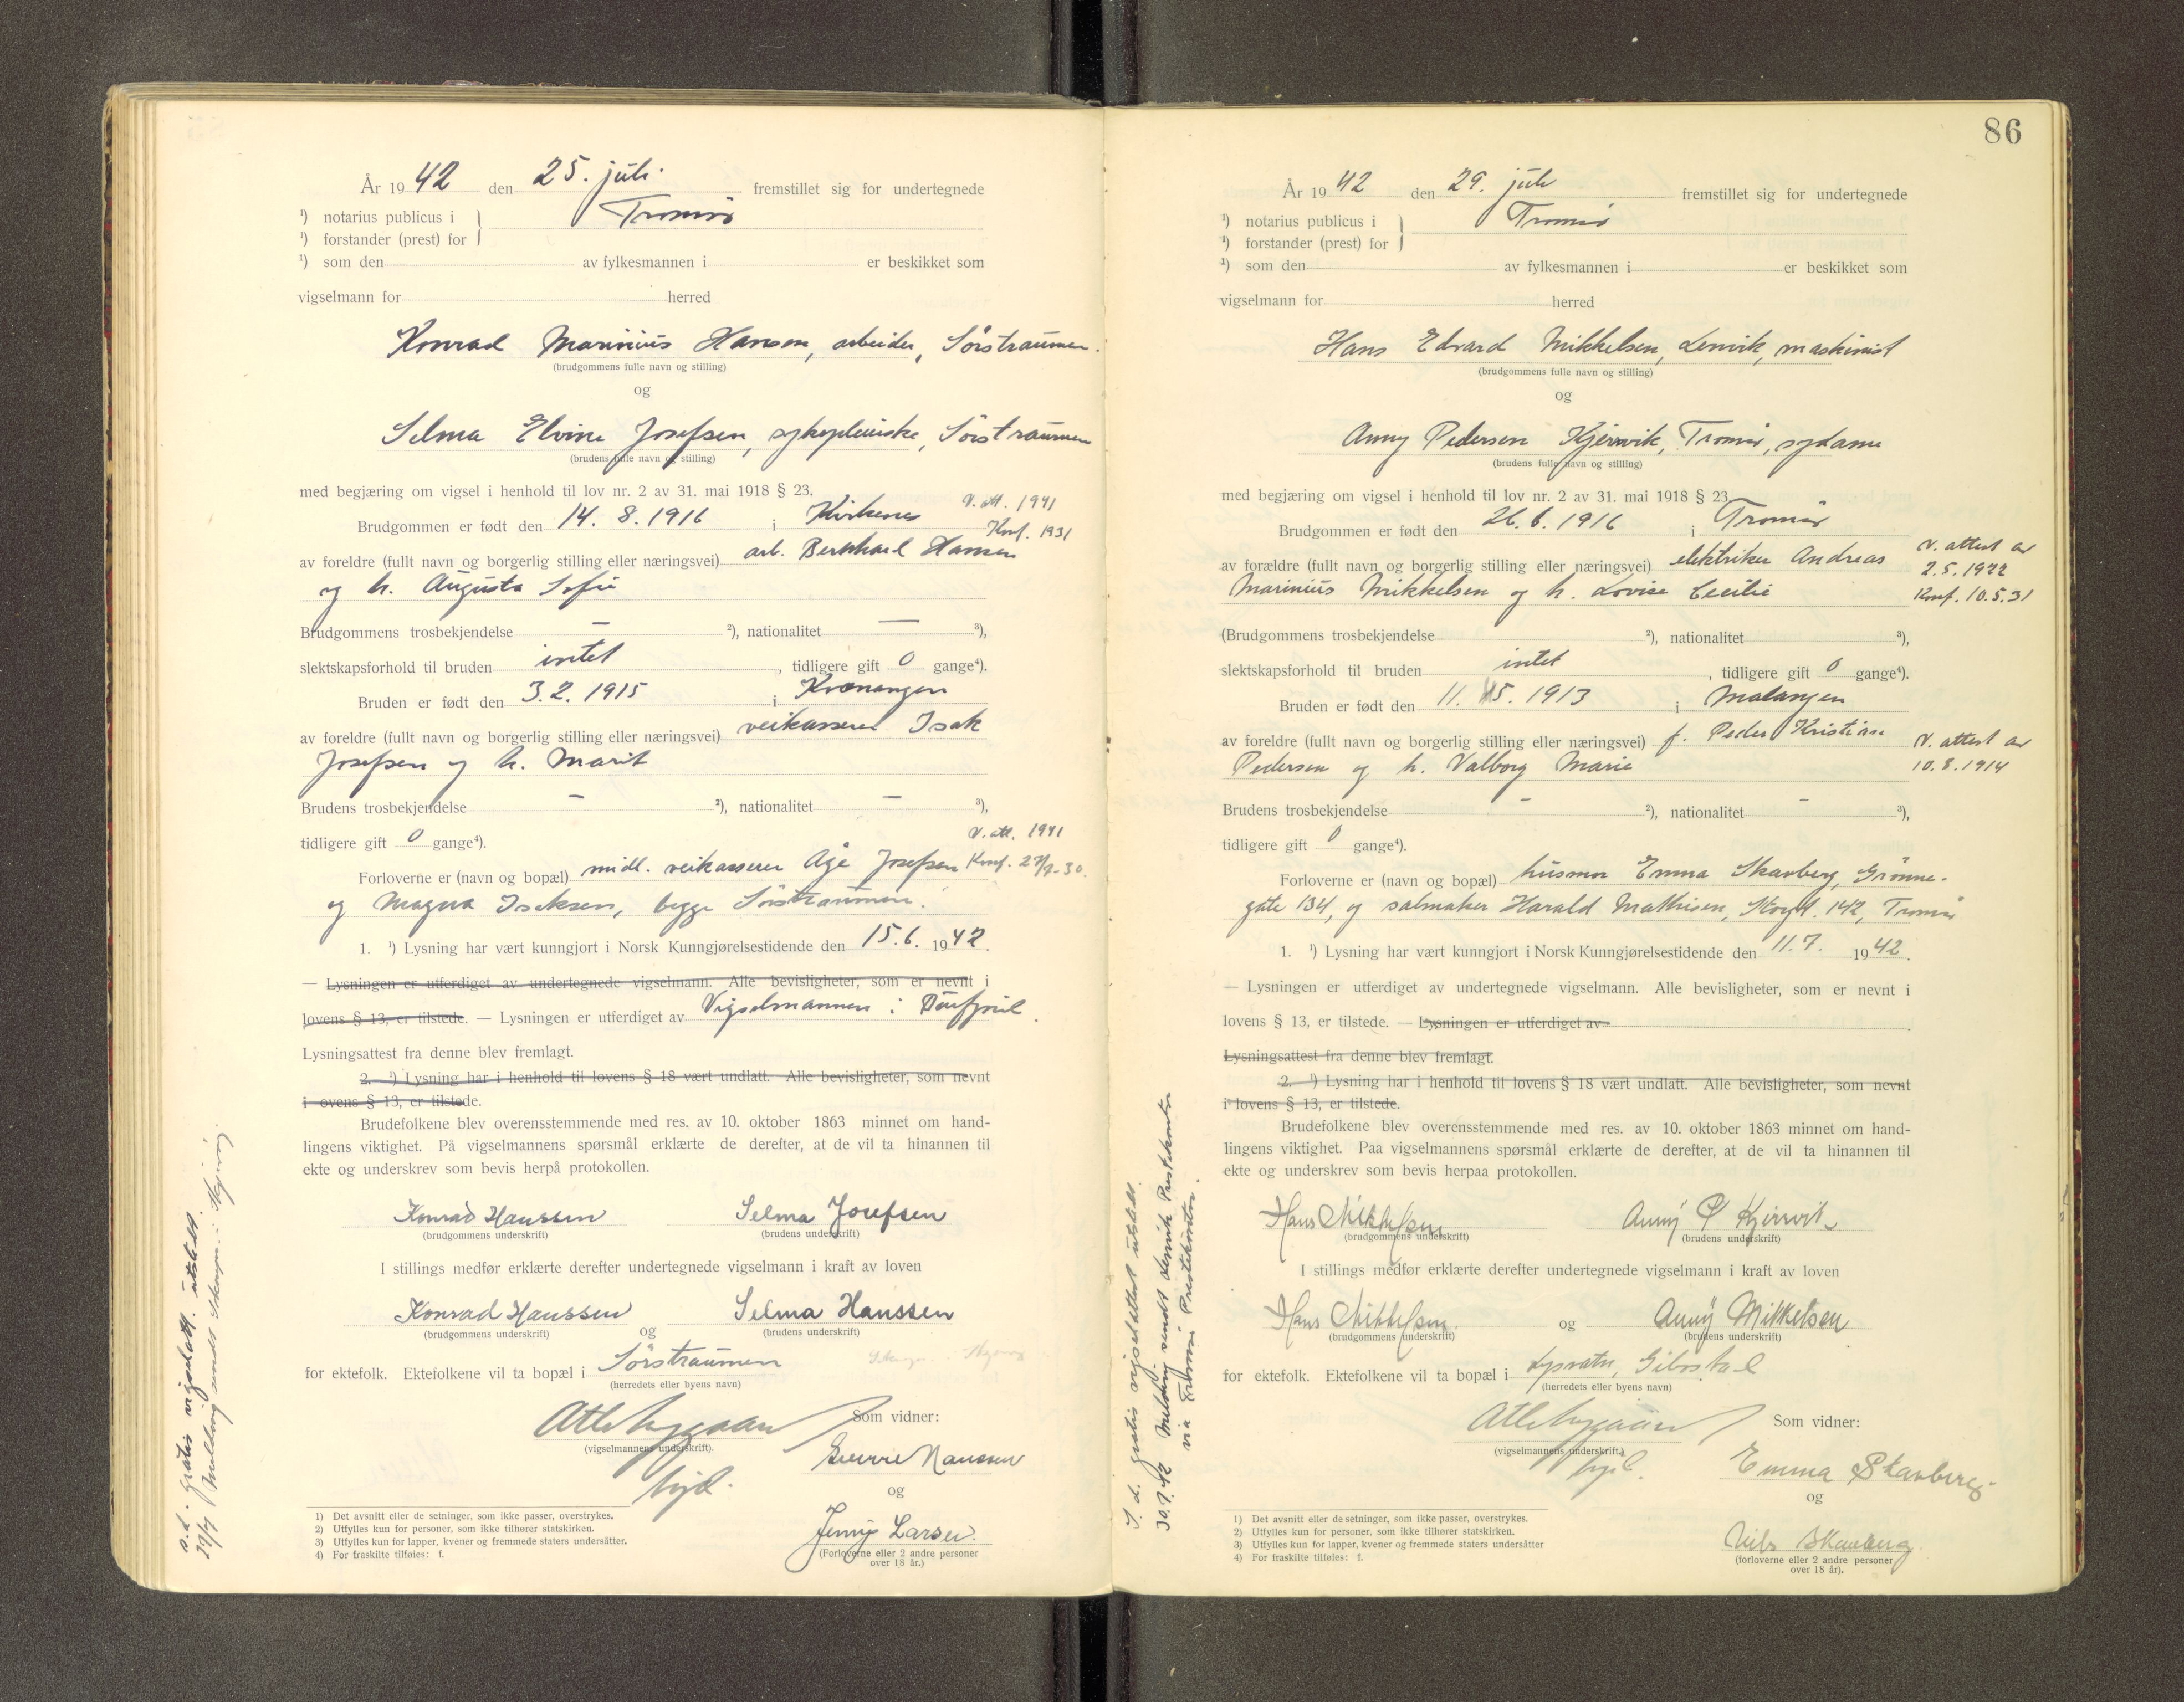 År 1942 den 25. juli. fremstillet sig for undertegnede
¹) notarius publicus i } Tromsö
¹) forstander (prest) for
¹) som den av fylkesmannen i er beskikket som
vigselmann for herred
Konrad Marinius Hansen, arbeider, Sörstraumen.
(brudgommens fulle navn og stilling)
og
Selma Elvine Josefsen, sykepleierske, Sörstraumen
(brudens fulle navn og stilling)
med begjæring om vigsel i henhold til lov nr. 2 av 31. mai 1918 § 23.
V. att. 1941
Brudgommen er født den 14. 8. 1916 i Kirkenes
Konf. 1931
av foreldre (fullt navn og borgerlig stilling eller næringsvei) arb. Bernhard Hansen
og h. Augusta Sofie
Brudgommens trosbekjendelse — ²), nationalitet — ³),
slektskapsforhold til bruden intet, tidligere gift 0 gange⁴).
Bruden er født den 3. 2. 1915 i Kvænangen
av foreldre (fullt navn og borgerlig stilling eller næringsvei) veikasserer Isak
Josefsen og h. Marit
Brudens trosbekjendelse — ²), nationalitet — ³),
V. att. 1941
tidligere gift 0 gange⁴).
Forloverne er (navn og bopæl) midl. veikasserer Åge Josefsen Konf. 27/7-30.
og Magna Isaksen, begge Sörstraumen.
1. ¹) Lysning har vært kunngjort i Norsk Kunngjørelsestidende den 15.6. 1942.
— Lysningen er utferdiget av undertegnede vigselmann. Alle bevisligheter, som er nevnt i
lovens § 13, er tilstede. — Lysningen er utferdiget av Vigselmannen i Burfjord.
Lysningsattest fra denne blev fremlagt.
2. ¹) Lysning har i henhold til lovens § 18 vært undlatt. Alle bevisligheter, som nevnt
i ovens § 13, er tilstede.
Brudefolkene blev overensstemmende med res. av 10. oktober 1863 minnet om hand-
lingens viktighet. På vigselmannens spørsmål erklærte de derefter, at de vil ta hinannen til
ekte og underskrev som bevis herpå protokollen.
Konrad Hanssen Selma Josefsen
(brudgommens underskrift) (brudens underskrift)
I stillings medfør erklærte derefter undertegnede vigselmann i kraft av loven
Konrad Hanssen Selma Hanssen
(brudgommens underskrift) og (brudens underskrift)
for ektefolk. Ektefolkene vil ta bopæl i Sörstraumen
(herredets eller byens navn)
Som vidner:
(vigselmannens underskrift).
Sverre Hanssen
og
Jenny Larsen
(Forloverne eller 2 andre personer
over 18 år.)
1) Det avsnitt eller de setninger, som ikke passer, overstrykes.
2) Utfylles kun for personer, som ikke tilhører statskirken.
3) Utfylles kun for lapper, kvener og fremmede staters undersåtter.
4) For fraskilte tilføies: f.
s.d. gratis vigselatt. utstedt.
29/7 Melding sendt i Skjervøy.
86
År 1942 den 29. juli fremstillet sig for undertegnede
¹) notarius publicus i } Tromsö
¹) forstander (prest) for
¹) som den av fylkesmannen i er beskikket som
vigselmann for herred
Hans Edvard Mikkelsen, Lenvik, maskinist
(brudgommens fulle navn og stilling)
og
Anny Pedersen Kjervik, Tromsö, sydame
(brudens fulle navn og stilling)
med begjæring om vigsel i henhold til lov nr. 2 av 31. mai 1918 § 23
Brudgommen er født den 26. 6. 1916 i Tromsö
av forældre (fullt navn og borgerlig stilling eller næringsvei) elektriker Andreas
V. attest av
2.5.1922
Marinius Mikkelsen og h. Lovise Cecilie
Konf. 10.5.31
(Brudgommens trosbekjendelse ²), nationalitet ³),
slektskapsforhold til bruden intet, tidligere gift 0 gange⁴).
Bruden er født den 11. 5. 1913 i Malangen
av foreldre (fullt navn og borgerlig stilling eller næringsvei) f. Peder Kristian
V. attest av
10.8.1914
Pedersen og h. Valborg Marie
Brudens trosbekjendelse - ²), nationalitet - ³),
tidligere gift 0 gange⁴).
Forloverne er (navn og bopæl) husmor Emma Skavberg, Grönne-
gate 134, og salmaker Harald Mathisen, Storgt. 142, Tromsö
1. ¹) Lysning har vært kunngjort i Norsk Kunngjørelsestidende den 11.7. 1942.
— Lysningen er utferdiget av undertegnede vigselmann. Alle bevisligheter, som er nevnt i
lovens § 13, er tilstede. — Lysningen er utferdiget av
Lysningsattest fra denne blev fremlagt.
2. ¹) Lysning har i henhold til lovens § 18 vært undlatt. Alle bevisligheter, som nevnt
i lovens § 13, er tilstede.
Brudefolkene blev overensstemmende med res. av 10. oktober 1863 minnet om hand-
lingens viktighet. Paa vigselmannens spørsmål erklærte de derefter, at de vil ta hinannen til
ekte og underskrev som bevis herpaa protokollen.
Hans Mikkelsen Anny P Kjervik
(brudgommens underskrift) (brudens underskrift)
I stillings medfør erklærte derefter undertegnede vigselmann i kraft av loven
Hans Mikkelsen og Anny Mikkelsen
(brudgommens underskrift) (brudens underskrift)
for ektefolk. Ektefolkene vil ta bopæl i Lysvatn, Gibostad
(herredets eller byens navn)
Som vidner:
(vigselmannens underskrift.)
Emma Skavberg
og
Nils Skavberg
(forloverne eller 2 andre personer
over 18 år).
1) Det avsnitt eller de setninger, som ikke passer, overstrykes.
2) Utfylles kun for personer, som ikke tilhører statskirken.
3) Utfylles kun for lapper, kvener og fremmede staters undersåtter
4) For fraskilte tilføies: f.
S. d. gratis vigselattest utstedt.
30.7.42 Melding sendt Lenvik Prestekontor
via Tromsö Prestekontor.